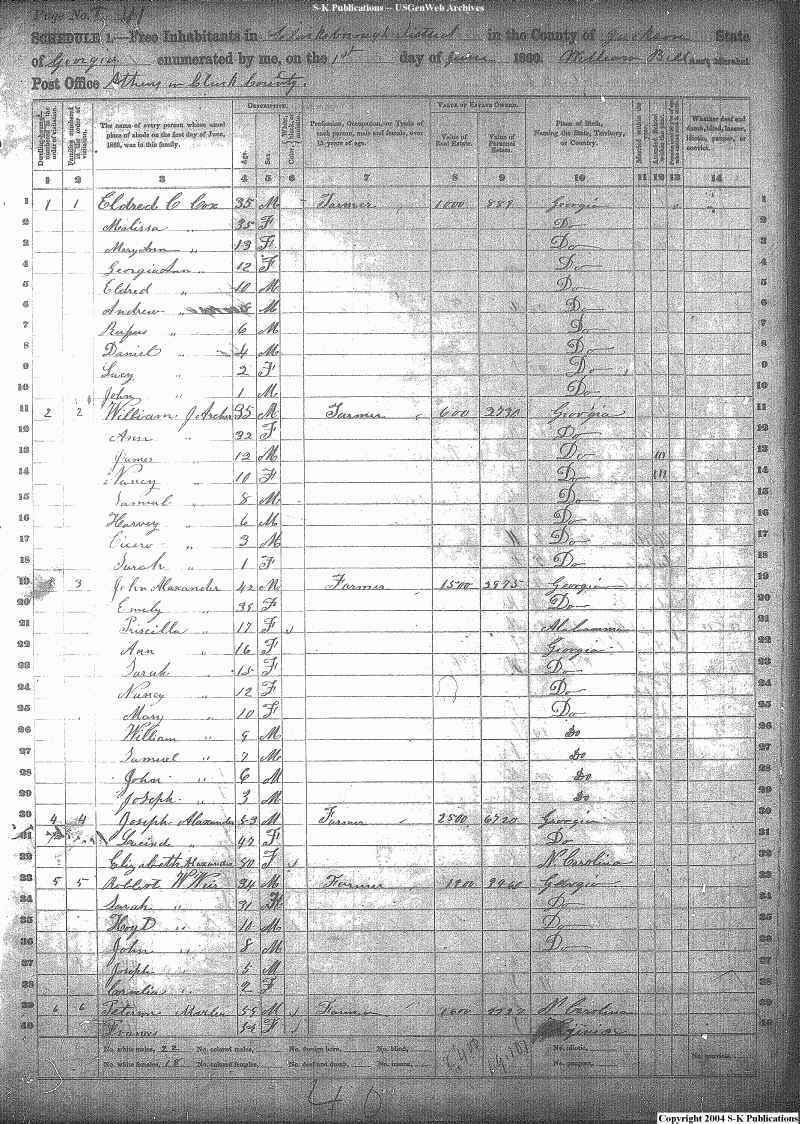 S-K Publications -- USGenWeb Archives
Page No. 41
SCHEDULE 1.—Free Inhabitants in Clarksborough District in the County of Jackson State
of Georgia enumerated by me, on the 1st day of June 1860. William Bell Ass't Marshal
Post Office Athens in Clark County.
DESCRIPTION. VALUE OF ESTATE OWNED.
Dwelling-houses numbered in the order of visitation. Families numbered in the order of visitation. The name of every person whose usual place of abode on the first day of June, 1860, was in this family. Age. Sex. Color Profession, Occupation, or Trade of each person, male and female, over 15 years of age. Value of Real Estate. Value of Personal Estate. Place of Birth, Naming the State, Territory, or Country. Married within the Attended School within the Whether deaf and dumb, blind, insane, idiotic, pauper, or convict.
1 2 3 4 5 6 7 8 9 10 11 12 13 14
1 1 1 Eldred C Cox 35 M Farmer 1000 889 Georgia 1
2 Malissa " 35 F Do 2
3 Mary Ann " 13 F Do 3
4 Georgia Ann " 12 F Do 4
5 Eldred " 10 M Do 5
6 Andrew " M Do 6
7 Rufus " 6 M Do 7
8 Daniel " 4 M Do 8
9 Lucy " 2 F Do 9
10 John " 1 M Do 10
11 2 2 William J Archer 35 M Farmer 600 2730 Georgia 11
12 Ann " 32 F Do 12
13 James " 12 M Do 13
14 Nancy " 10 F Do 14
15 Samuel " 8 M Do 15
16 Harvey " 6 M Do 16
17 Cicero " 3 M Do 17
18 Sarah " 1 F Do 18
19 3 John Alexander 42 M Farmer 1500 2975 Georgia 19
20 Emily " F Do 20
21 Priscilla " 17 F Alabamma 21
22 Ann " 16 F Georgia 22
23 Sarah " 15 F Do 23
24 Nancy " 12 F Do 24
25 Mary " 10 F Do 25
26 William " 9 M Do 26
27 Samuel " 7 M Do 27
28 John " 6 M Do 28
29 Joseph " 3 M Do 29
30 4 4 Joseph Alaxander 53 M Farmer 2500 6720 Georgia 30
31 Lucind " 47 F Do 31
32 Elizabeth Alaxander 80 F N Carolina 32
33 5 5 Robbert W Wier 34 M Farmer 1200 2960 Georgia 33
34 Sarah " 31 Do 34
35 Hoyt " 10 M Do 35
36 John " 8 M Do 36
37 Joseph " 5 M 37
38 Cornelia " 2 F 38
39 6 6 Peterson Marler 55 M Farmer N Carolina 39
40 Frances 54 F 40
No. white males, 22 No. colored males, No. foreign born, No. blind, No. idiotic,
No. white females, 18 No. colored females, No. deaf and dumb, No. insane, No. paupers, No. convicts,
40
Copyright 2004 S-K Publications